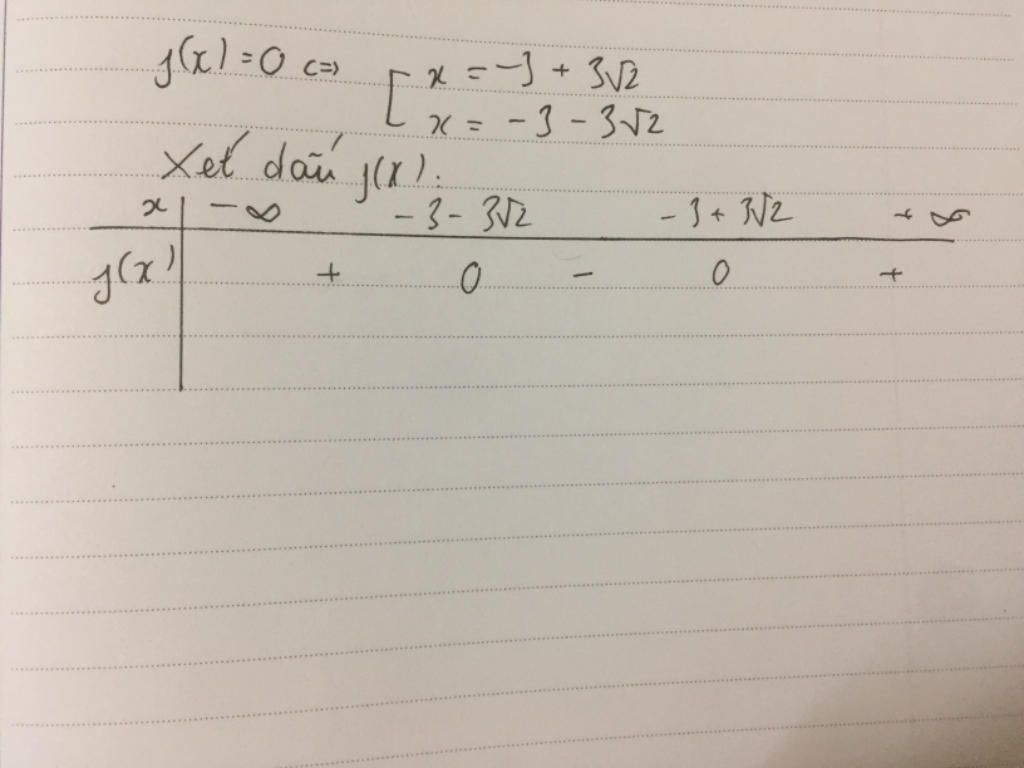 f(x) = 0 <=> [ x = -3 + 3√2
x = -3 - 3√2
Xét dấu f(x):
x | -∞ -3-3√2 -3+3√2 +∞
f(x) | + 0 - 0 +